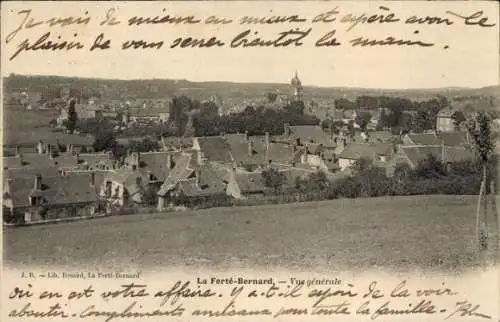 Je vais de mieux en mieux et espère avoir le
plaisir de vous serrer bientôt la main.
J. B. — Lib. Benard, La Ferté-Bernard
La Ferté-Bernard, — Vue générale
Où en est votre affaire, Y a-t-il espoir de la voir
aboutir. Compliments amicaux pour toute la famille,